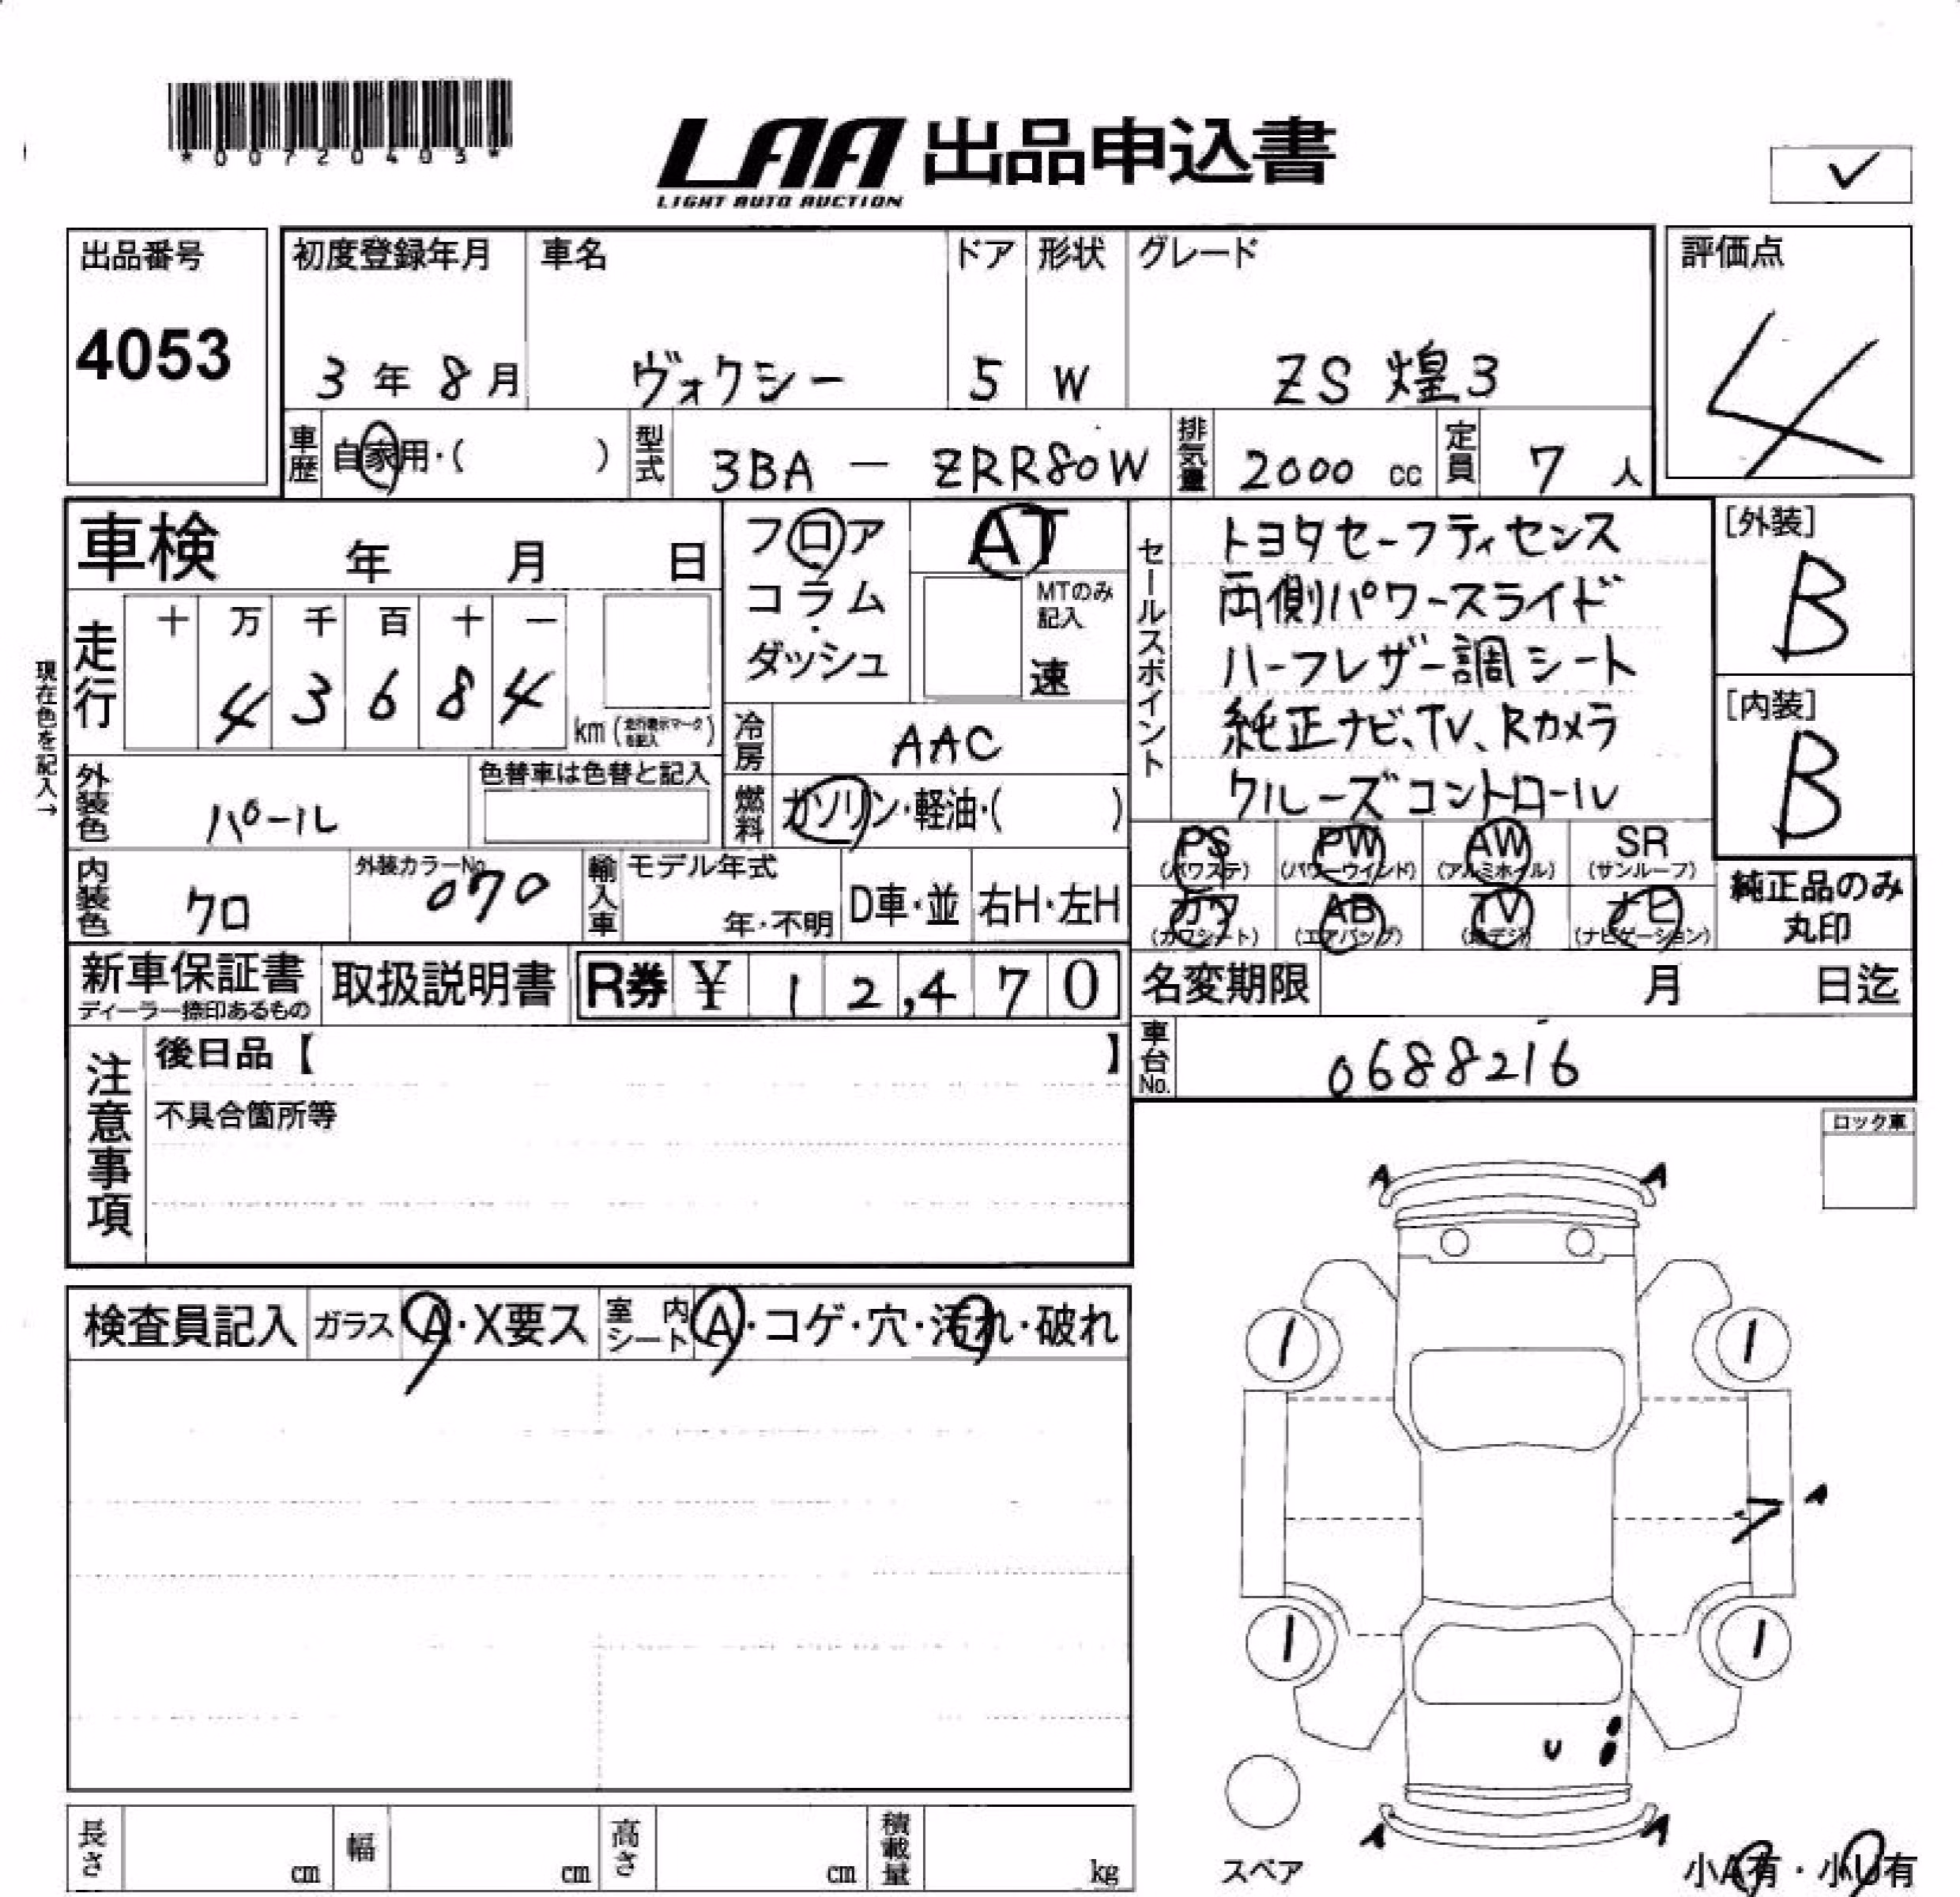 *00720403*
LAA 出品申込書
LIGHT AUTO AUCTION
✓
出品番号
4053
初度登録年月 車名 ドア 形状 グレード
3年8月 ヴォクシー 5 W ZS 煌3
評価点
4
車歴 自家用・( ) 型式 3BA - ZRR80W 排気量 2000 cc 定員 7 人
車検 年 月 日
フロア
コラム
・
ダッシュ
AT
MTのみ
記入
速
セールスポイント
トヨタセーフティセンス
両側パワースライド
ハーフレザー調シート
純正ナビ、TV、Rカメラ
クルーズコントロール
[外装]
B
[内装]
B
現在色を記入→
走行 十 万 千 百 十 一
4 3 6 8 4
km (走行表示マークを記入)
冷房 AAC
外装色 パール 色替車は色替と記入
燃料 ガソリン・軽油・( )
PS PW AW SR
(パワステ) (パワーウインド) (アルミホイル) (サンルーフ)
カワ AB TV ナビ
(カワシート) (エアバッグ) (地デジ) (ナビゲーション)
純正品のみ
丸印
内装色 クロ 外装カラーNo. 070 輸入車 モデル年式 年・不明 D車・並 右H・左H
新車保証書
ディーラー捺印あるもの
取扱説明書 R券 ¥ 12,470
名変期限 月 日迄
車台No. 0688216
注意事項
後日品【 】
不具合箇所等
ロック車
A A
検査員記入 ガラス A・X要ス 室内シート A・コゲ・穴・汚れ・破れ
1 1
A
1 1
U
A A
スペア
小A有・小U有
長さ cm 幅 cm 高さ cm 積載量 kg